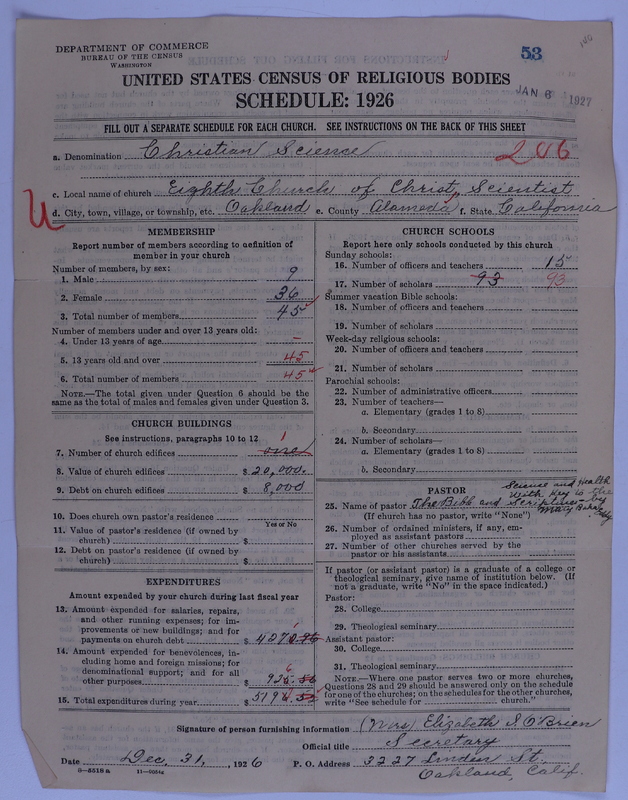 DEPARTMENT OF COMMERCE
BUREAU OF THE CENSUS
WASHINGTON
53
UNITED STATES CENSUS OF RELIGIOUS BODIES
SCHEDULE: 1926
JAN 6 1927
FILL OUT A SEPARATE SCHEDULE FOR EACH CHURCH. SEE INSTRUCTIONS ON THE BACK OF THIS SHEET
a. Denomination Christian Science
206
c. Local name of church Eighth Church of Christ, Scientist
d. City, town, village, or township, etc. Oakland e. County Alameda f. State California
MEMBERSHIP
Report number of members according to definition of
member in your church
Number of members, by sex:
1. Male 9
2. Female 36
3. Total number of members 45
Number of members under and over 13 years old:
4. Under 13 years of age –
5. 13 years old and over 45
6. Total number of members 45
NOTE.—The total given under Question 6 should be the
same as the total of males and females given under Question 3.
CHURCH BUILDINGS
See instructions, paragraphs 10 to 12
7. Number of church edifices one 1
8. Value of church edifices $ 20,000.
9. Debt on church edifices $ 8,000
10. Does church own pastor's residence
Yes or No
11. Value of pastor's residence (if owned by
church) $
12. Debt on pastor's residence (if owned by
church) $
EXPENDITURES
Amount expended by your church during last fiscal year
13. Amount expended for salaries, repairs,
and other running expenses; for im-
provements or new buildings; and for
payments on church debt $
14. Amount expended for benevolences, in-
cluding home and foreign missions; for
denominational support; and for all
other purposes $
15. Total expenditures during year $
CHURCH SCHOOLS
Report here only schools conducted by this church
Sunday schools:
16. Number of officers and teachers 15
17. Number of scholars 93 93
Summer vacation Bible schools:
18. Number of officers and teachers
19. Number of scholars
Week-day religious schools:
20. Number of officers and teachers
21. Number of scholars
Parochial schools:
22. Number of administrative officers
23. Number of teachers—
a. Elementary (grades 1 to 8)
b. Secondary
24. Number of scholars—
a. Elementary (grades 1 to 8)
b. Secondary
PASTOR
25. Name of pastor The Bible and Science and Health
With Key to the
Scriptures by
Mary Baker Eddy
(If church has no pastor, write "None")
26. Number of ordained ministers, if any, em-
ployed as assistant pastors
27. Number of other churches served by the
pastor or his assistants
If pastor (or assistant pastor) is a graduate of a college or
theological seminary, give name of institution below. (If
not a graduate, write "No" in the space indicated.)
Pastor:
28. College
29. Theological seminary
Assistant pastor:
30. College
31. Theological seminary
NOTE.—Where one pastor serves two or more churches,
Questions 28 and 29 should be answered only on the schedule
for one of the churches; on the schedules for the other churches,
write "See schedule for church."
Signature of person furnishing information (Mrs) Elizabeth S. O'Brien
Official title Secretary
Date Dec. 31, 1926 P. O. Address 3227 Linden St.
Oakland, Calif.
8—5518a 11—9054